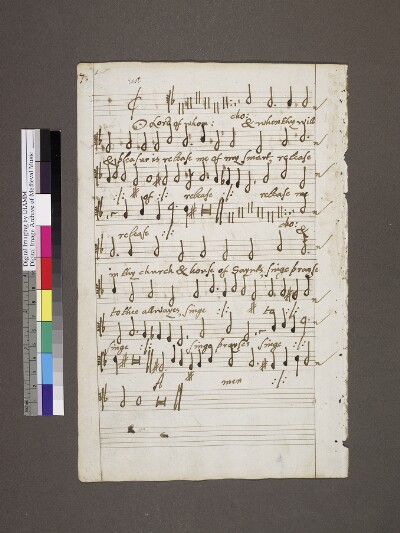 O Lord of whom : cho: & when thy will
& pleasur is release me of my smart, release
:/: of :/: release :/: release me
release :/: cho: &
in thy church & howse of Saynts, singe prayse
to thee allwayes, singe :/: to :/:
singe :/: singe prayse, singe :/:
A men :/:
Digital Imaging by DIAMM
Digital Image Archive of Medieval Music